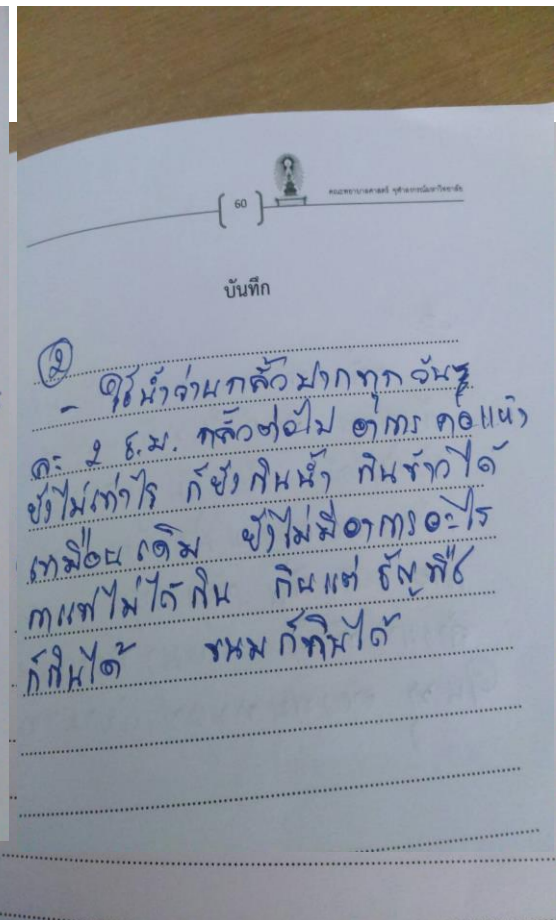 60
คณะพยาบาลศาสตร์ จุฬาลงกรณ์มหาวิทยาลัย
บันทึก
②
- ใช้น้ำว่านกลั้วปากทุกวันๆ
ละ 2 ช.ม. กลั้วต่อไป อาการ คอแห้ง
ยังไม่เท่าไร ก็ยังกินน้ำ กินข้าวได้
เหมือนเดิม ยังไม่มีอาการอะไร
กาแฟไม่ได้กิน กินแต่ ธัญพืช
ก็กินได้ ขนมก็กินได้